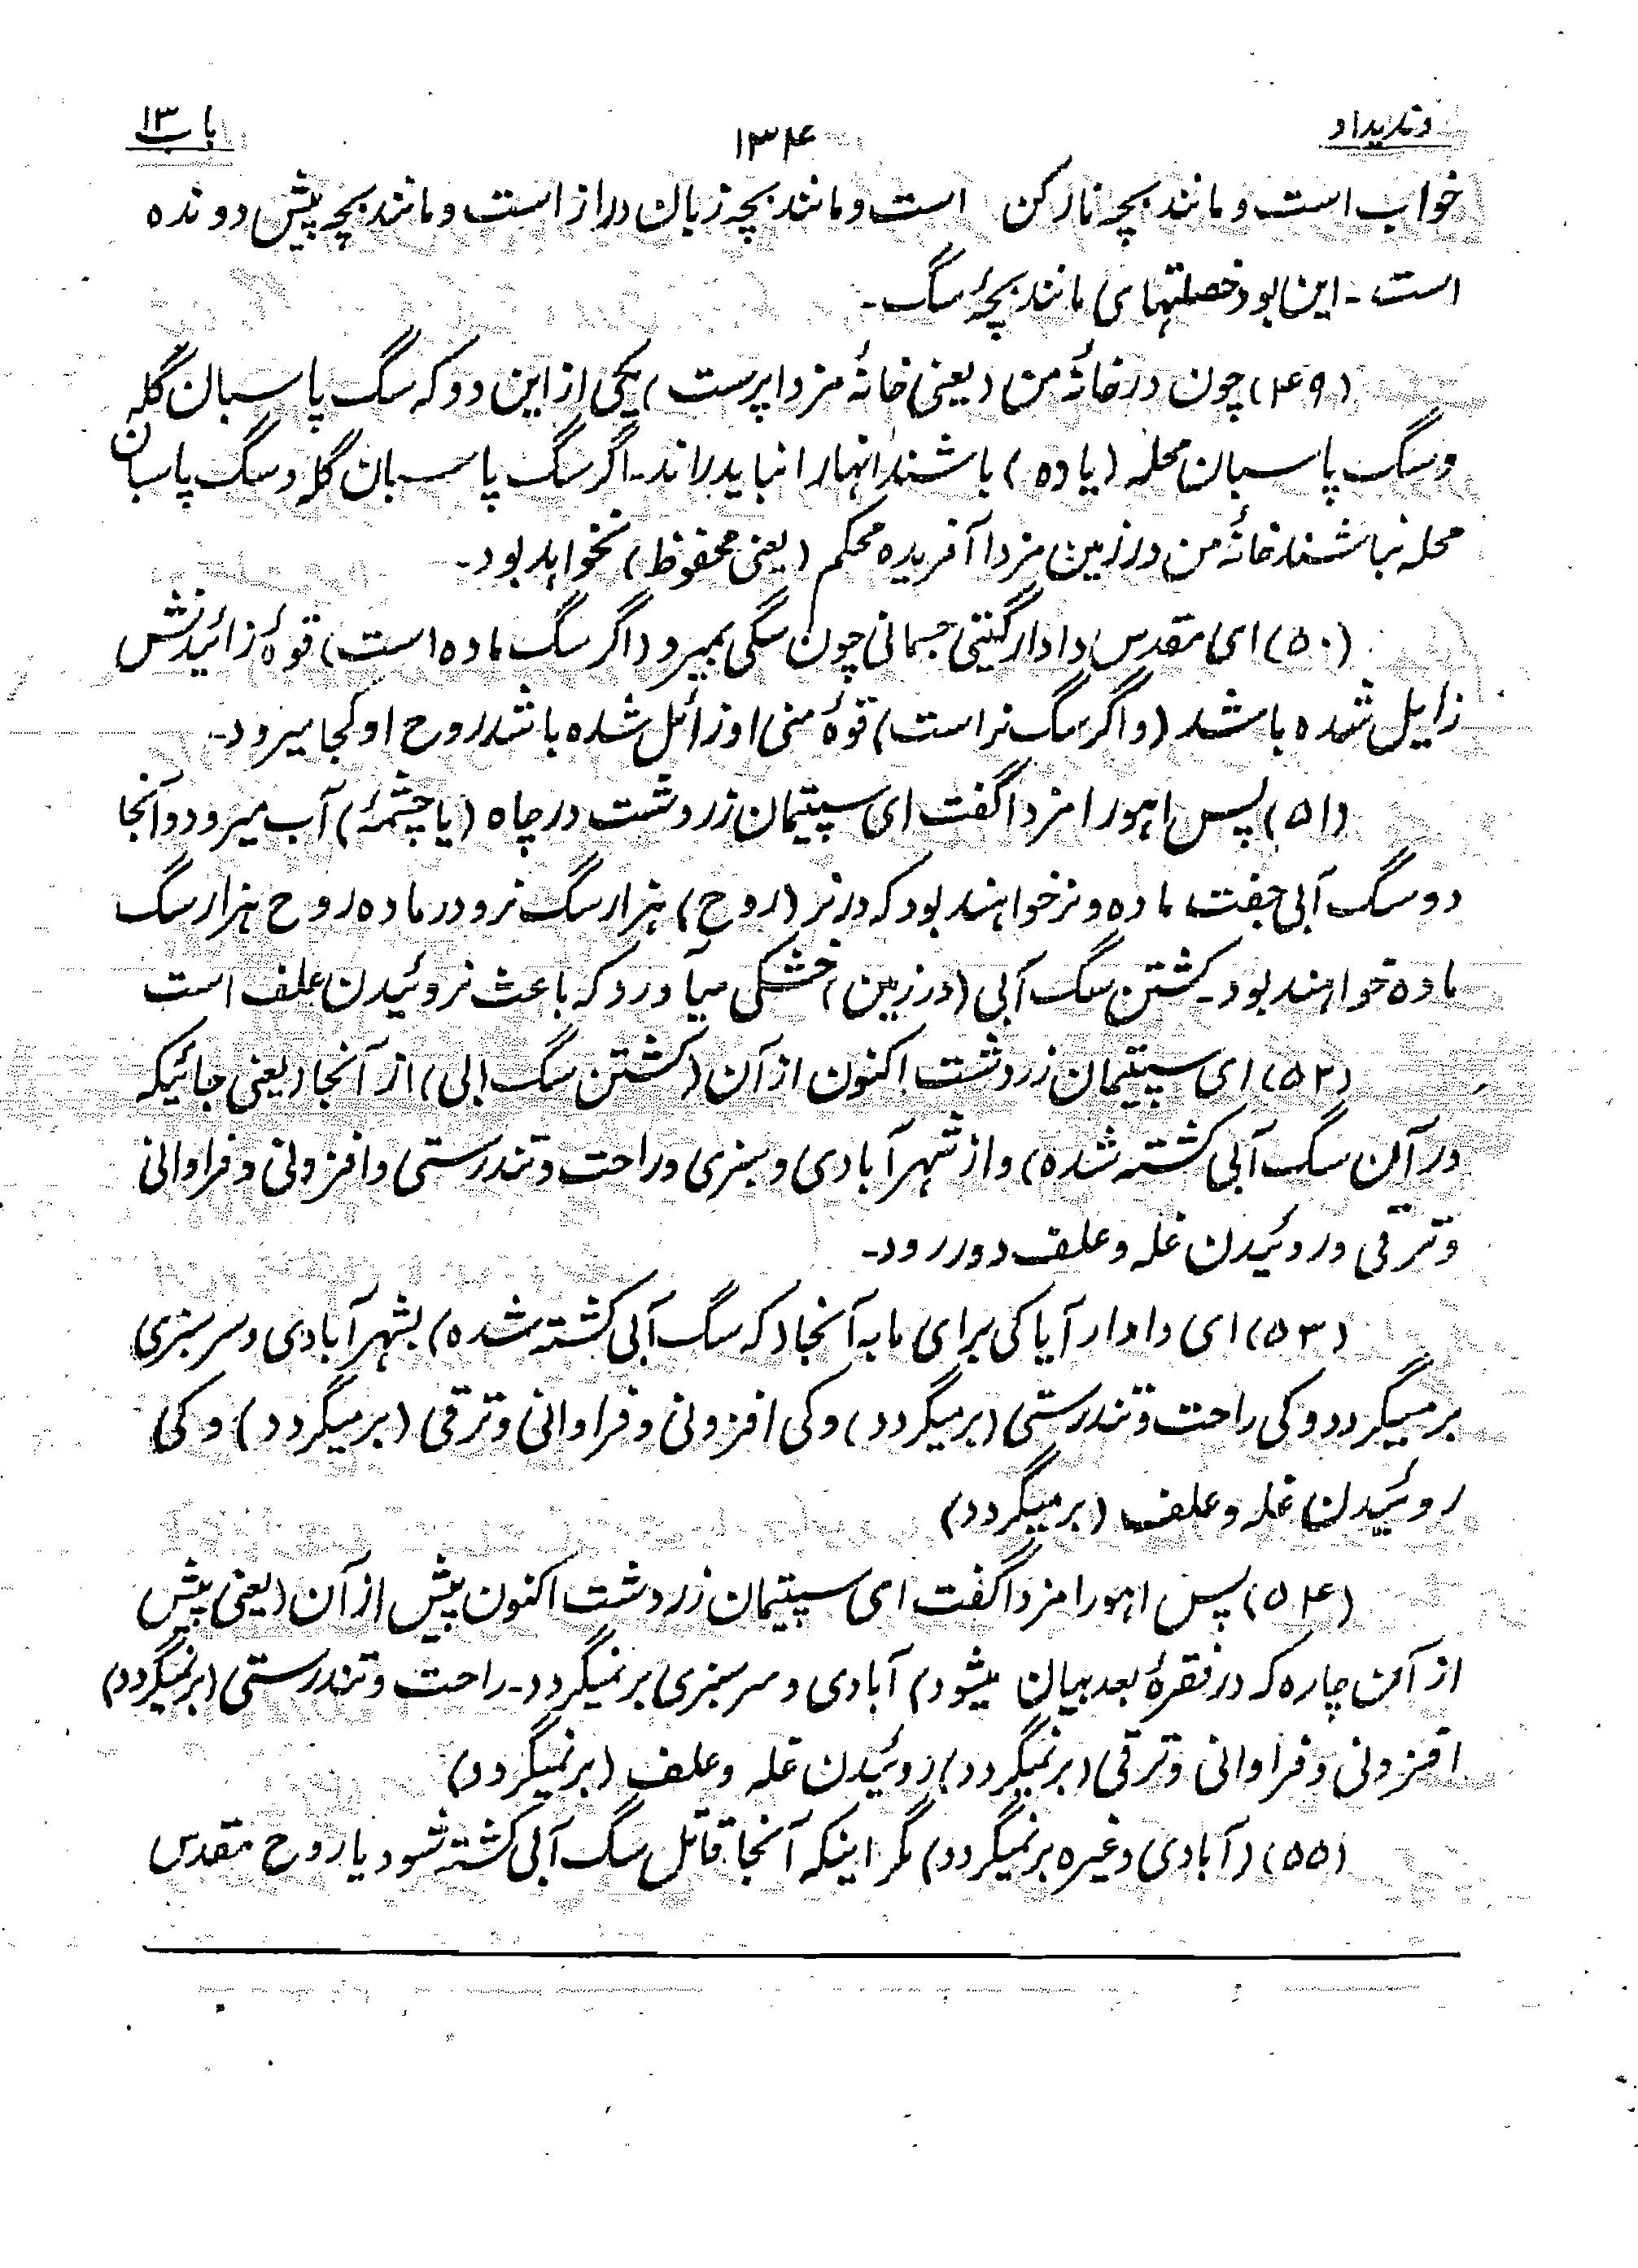 وندیداد ۱۳۴ باب ۱۳
خواب است و مانند بچه نازکن است و مانند بچه زبان دراز است و مانند بچه پیش دونده
است - این بود خصلتهای مانند بچهٔ سگ -
(۴۹) چون در خانهٔ من (یعنی خانهٔ مزدا پرست) یکی از این دو که سگ پاسبان گله
و سگ پاسبان محله (یا ده) باشند آنها را نباید راند - اگر سگ پاسبان گله و سگ پاسبان
محله نباشند خانهٔ من در زمین مزدا آفریده محکم (یعنی محفوظ) نخواهد بود -
(۵۰) ای مقدس دادار گیتی جسمانی چون سگی بمیرد (اگر سگ ماده است) قوهٔ زائیدنش
زایل شده باشد (و اگر سگ نر است) قوهٔ منی او زائل شده باشد روح او کجا میرود -
(۵۱) پس اهورا مزدا گفت ای سپتیمان زردشت در چاه (یا چشمهٔ) آب میرود و آنجا
دو سگ آبی جفت ماده و نر خواهند بود که در نر (روح) هزار سگ نر و در ماده روح هزار سگ
ماده خواهند بود - کشتن سگ آبی (در زمین) خشکی میآورد که باعث نروئیدن علف است
(۵۲) ای سپتیمان زردشت اکنون از آن (کشتن سگ ابی) از آنجا (یعنی جائیکه
در آن سگ آبی کشته شده) و از شهر آبادی و سبزی و راحت و تندرستی و افزونی و فراوانی
و ترقی و روئیدن غله و علف دور رود -
(۵۳) ای دادار آیا کی برای ما به آنجا (که سگ آبی کشته شده) بشهر آبادی و سرسبزی
برمیگردد و کی راحت و تندرستی (برمیگردد) و کی افزونی و فراوانی و ترقی (برمیگردد) و کی
روئیدن غله و علف (برمیگردد)
(۵۴) پس اهورا مزدا گفت ای سپتیمان زردشت اکنون پیش از آن (یعنی پیش
از آن چاره که در فقرهٔ بعد بیان میشود) آبادی و سرسبزی برنمیگردد - راحت و تندرستی (برنمیگردد)
افزونی و فراوانی و ترقی (برنمیگردد) روئیدن غله و علف (برنمیگردد)
(۵۵) (آبادی وغیره برنمیگردد) مگر اینکه آنجا قاتل سگ آبی کشته شود یا روح مقدس